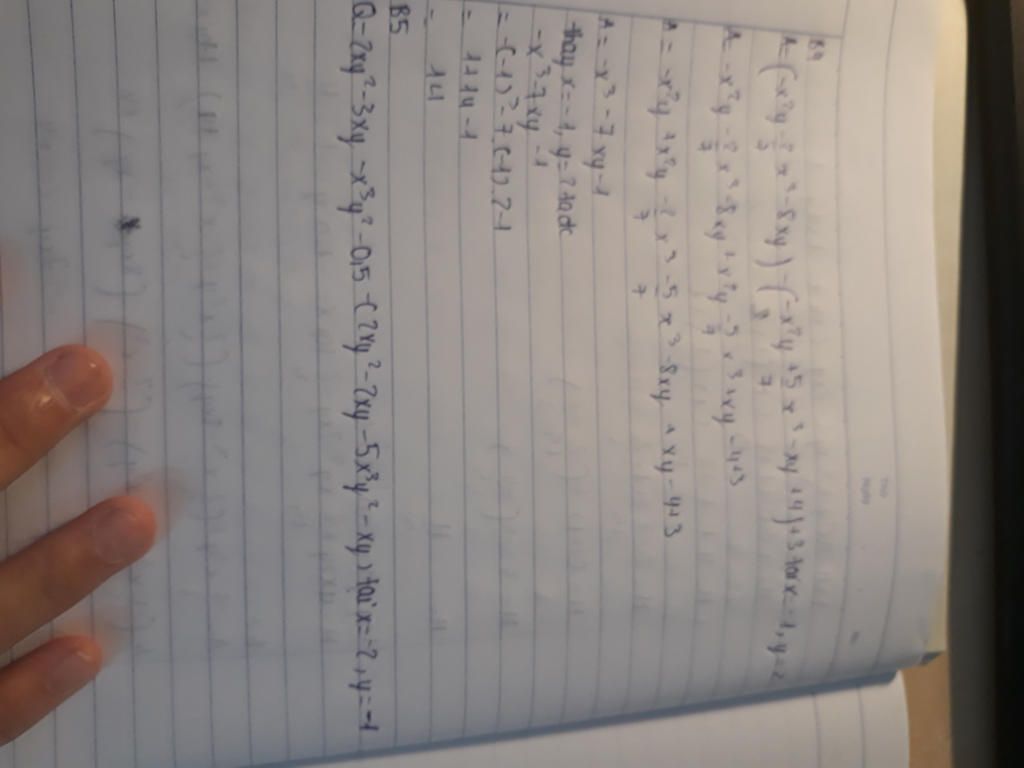 B4
A = (-x²y - 2/7 x³ - 8xy) - (-x²y + 5/7 x³ - xy + 4) + 3 tại x = -1, y = 2
A = -x²y - 2/7 x³ - 8xy + x²y - 5/7 x³ + xy - 4 + 3
A = -x²y + x²y - 2/7 x³ - 5/7 x³ - 8xy + xy - 4 + 3
A = -x³ - 7xy - 1
thay x = -1, y = 2 ta dc
-x³ - 7xy - 1
= -(-1)³ - 7.(-1).2 - 1
= 1 + 14 - 1
= 14
B5
Q = 2xy² - 3xy - x³y² - 0,5 - (2xy² - 2xy - 5x³y² - xy) tại x = -2, y = -1